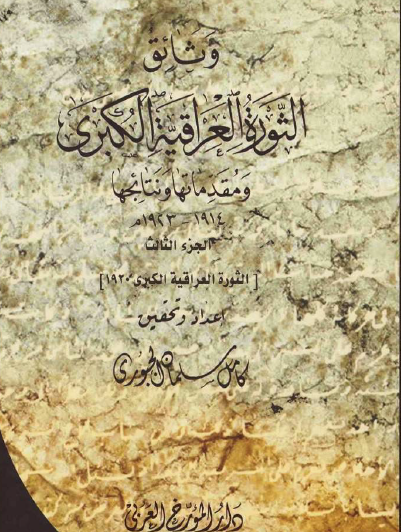 وَثائق
الثَّورَةُ العِرَاقيَّةِ الكُبْرَى
وَمُقَدِّمَاتُهَا وَنَتَائِجُهَا
١٩١٤ - ١٩٢٣م
الجزء الثالث
[ الثورة العراقية الكبرى ١٩٢٠]
إعداد وتحقيق
كامل سلمان الجبوري
دار المؤرخ العربي